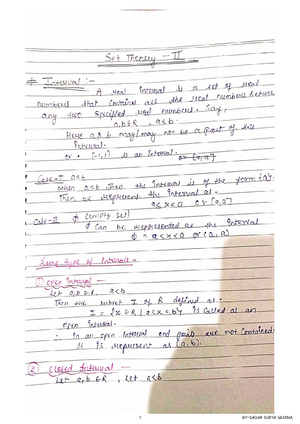 Set Theory - II
# Interval :-
A real interval is a set of real
numbers that contains all the real numbers between
any two specified real numbers. Say,
a,b∈R , a<b
Here a & b may/may not be a part of this
interval.
ex • [-1,1] is an interval.
or [a,a]
Case-I a=b
when a=b, then the interval is of the form {a}.
Then, we represent the interval as -
a≤x≤a or [a,a]
Case-II ϕ (empty set)
ϕ can be represented as the interval
ϕ = a<x<a or (a,a)
Some type of Intervals -
① Open Interval -
Let a,b∈R. a<b
Then the subset I of R defined as -
I = {x∈R | a<x<b} is called as an
open interval.
∴ In an open interval end are not contained.
It is represent as (a,b).
② Closed Interval -
Let a,b∈R , Let a<b
1
BY-SAGAR SURYA SAXENA